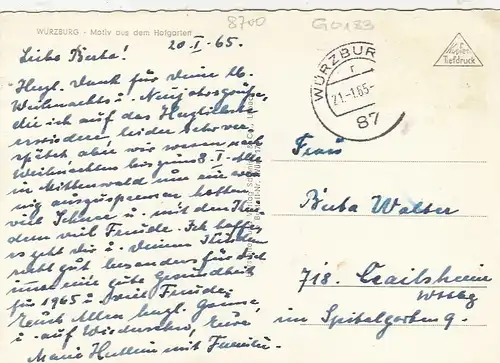 WÜRZBURG - Motiv aus dem Hofgarten
8700
G0183
20.I.65.
Liebe Berta!
Hzgl. Dank für Deine lb.
Weihnachts u. Neujahrsgrüße,
die ich auf das Herzlichste
erwidere, leider sehr ver-
spätet aber wir waren nach
Weihnachten bis zum 8.I. Alle
in Mittenwald um ein we-
nig auszuspannen, hatten
viel Schnee u. mit den
dem viel Freude. Ich hoffe,
es geht Dir u. Deinen
recht gut, besonders für Dich
immer eine gute Gesundheit
für 1965 u. viel Freude.
Euch Allen herzl. Grüsse,
u. auf Wiedersehen, Eure,
Marie mit Familie.
WÜRZBURG
r
21.-1.65-
87
Kupfer-
Tiefdruck
Frau
Berta Walter
718. Crailsheim
Wttbg
im Spitalgarten 9.